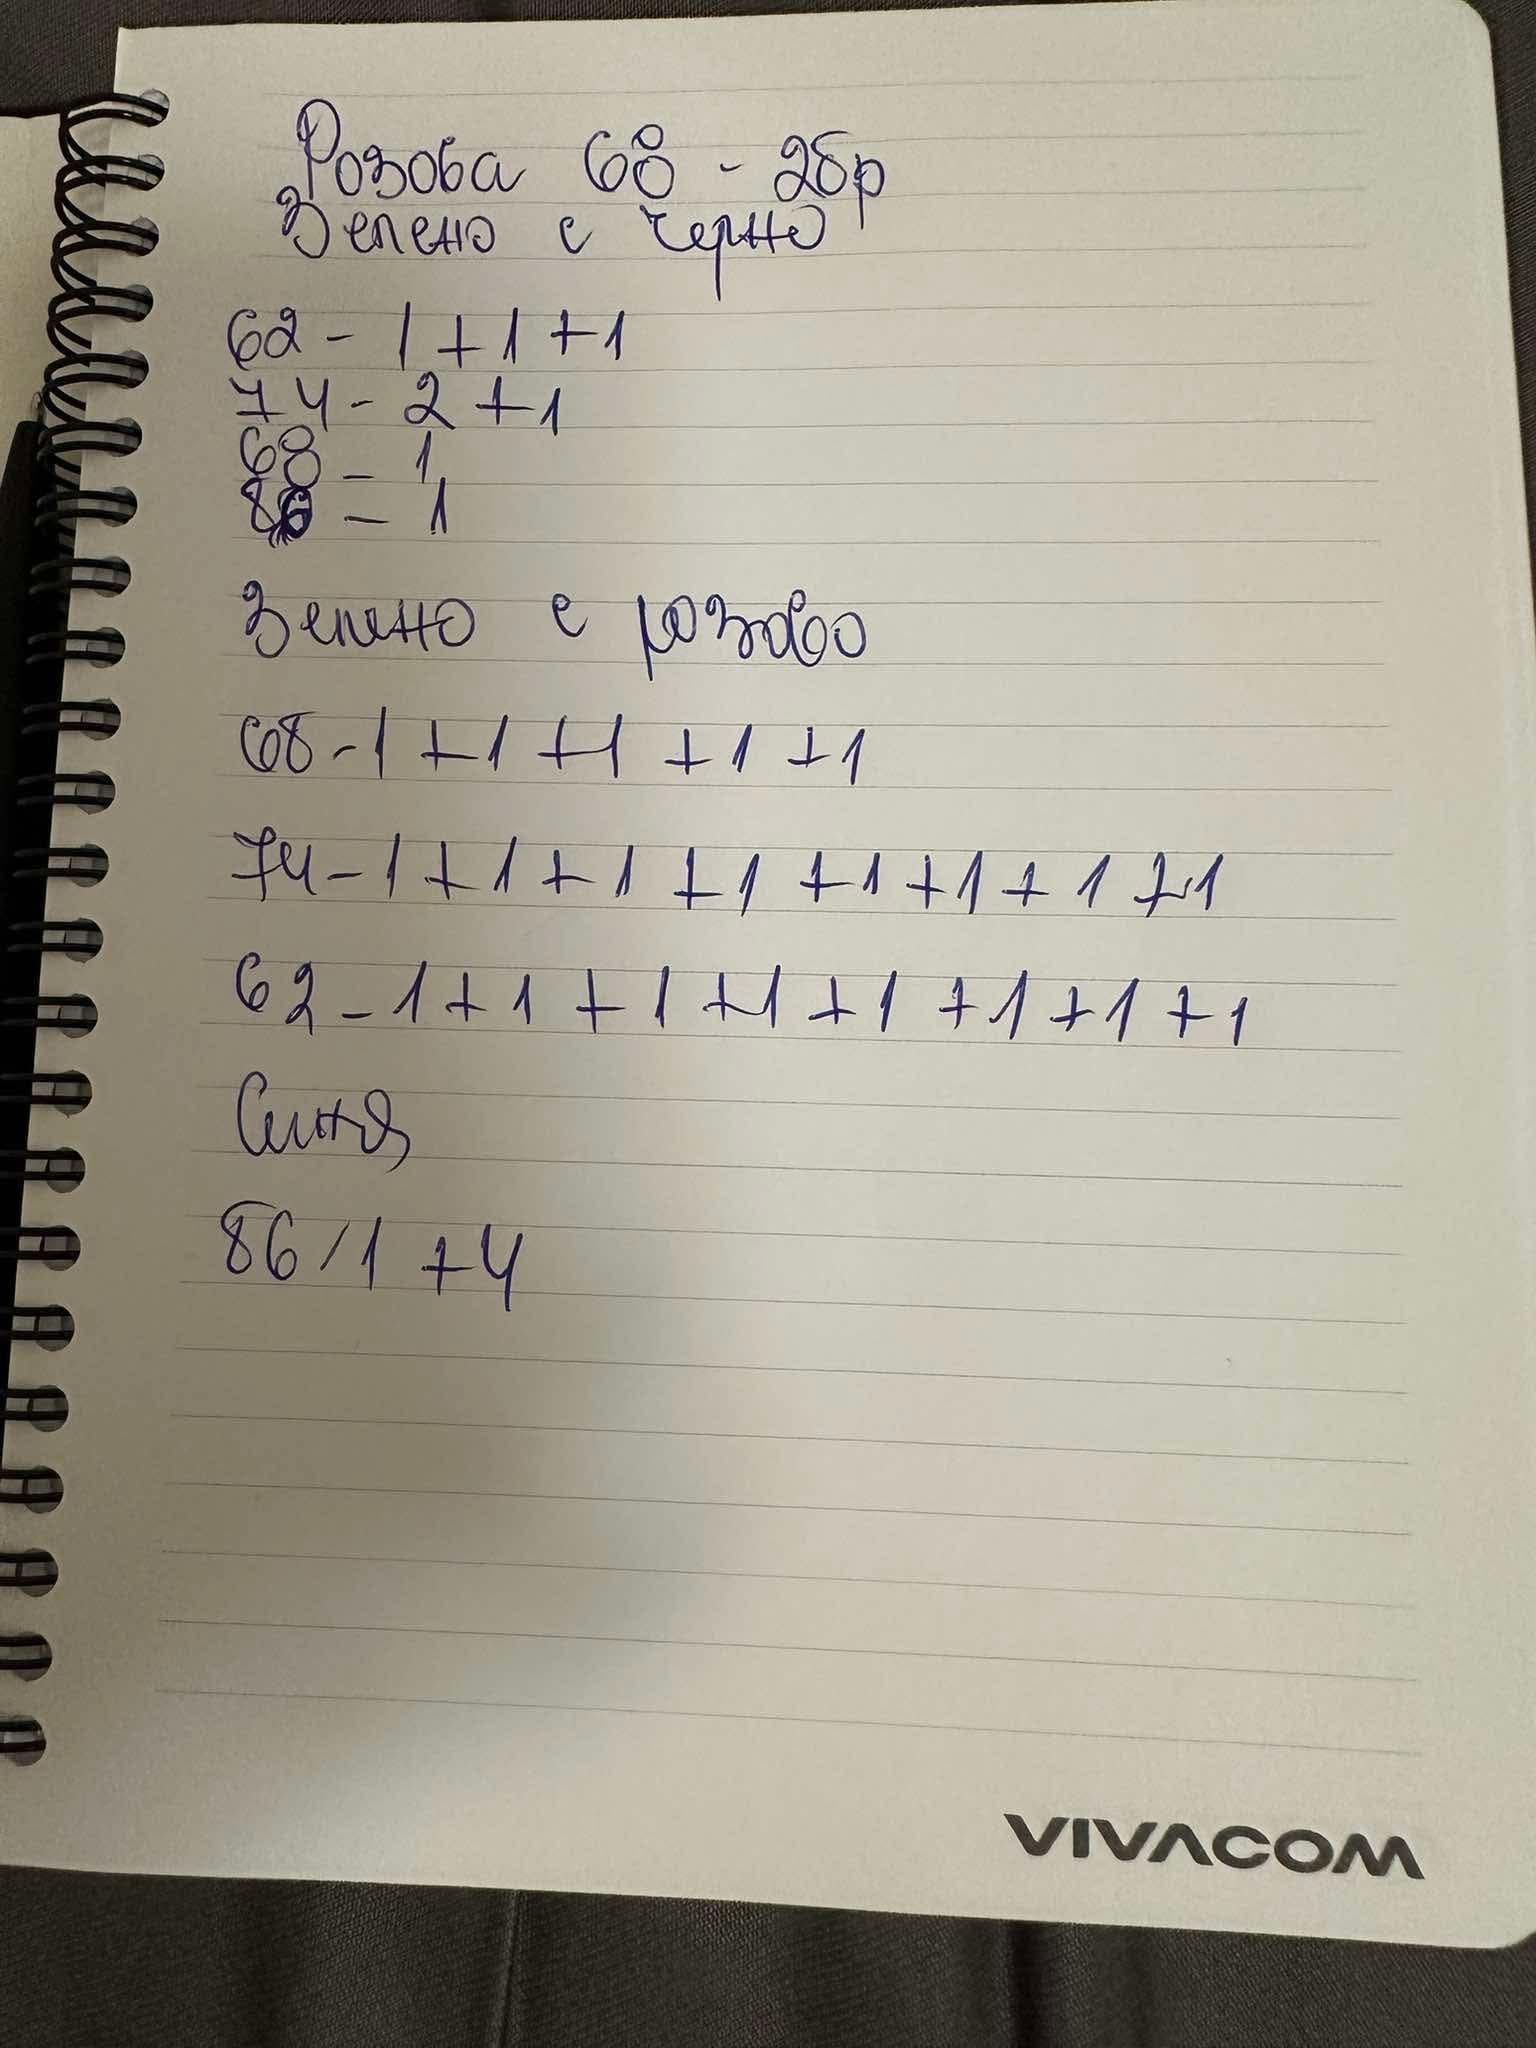 Розова 68 - 2бр
Зелено с черно
62 - 1 + 1 + 1
74 - 2 + 1
68 - 1
86 - 1
Зелено с розово
68 - 1 + 1 + 1 + 1 + 1
74 - 1 + 1 + 1 + 1 + 1 + 1 + 1 + 1
62 - 1 + 1 + 1 + 1 + 1 + 1 + 1 + 1
Синя
86 / 1 + 4
VIVACOM